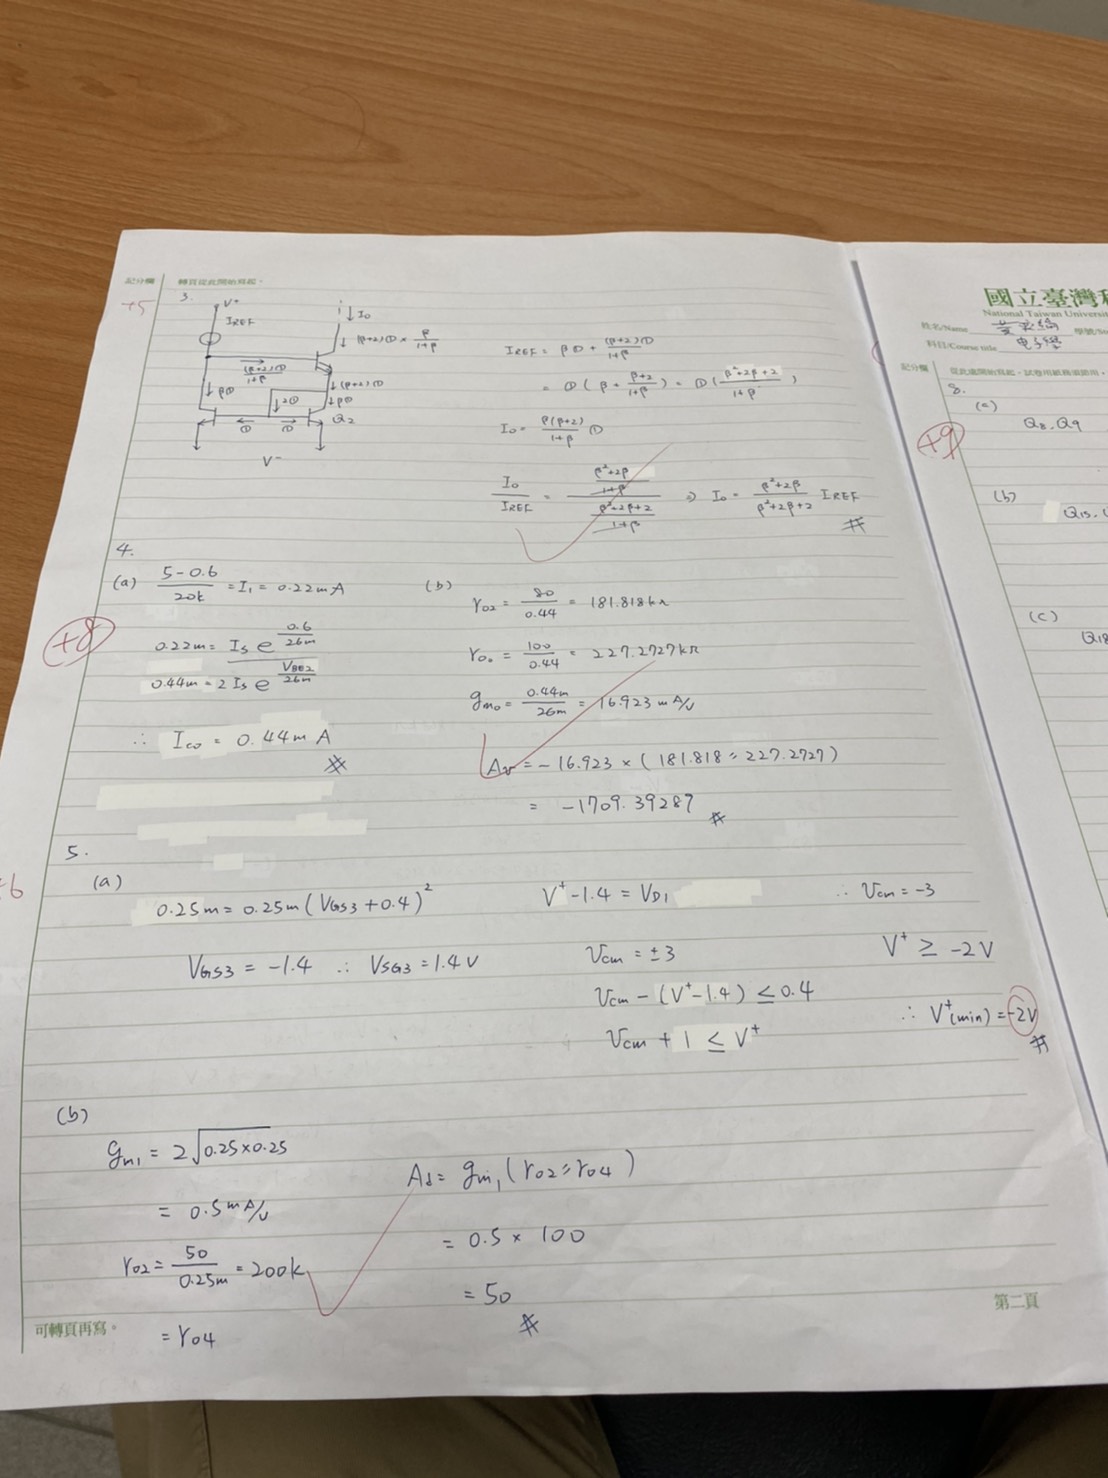 記分欄
轉頁從此開始寫起。
+5
3.
V+
IREF
↓ I0
↓ (β+2)① × β/(1+β)
(β+2)①/(1+β)
↓ (β+2)①
↓ β①
↓ 2①
↓ β①
① ①
Q2
V-
IREF = β① + (β+2)①/(1+β)
= ① (β + (β+2)/(1+β)) = ① ((β²+2β+2)/(1+β))
I0 = β(β+2)/(1+β) ①
I0/IREF = ((β²+2β)/(1+β)) / ((β²+2β+2)/(1+β)) ⇒ I0 = (β²+2β)/(β²+2β+2) IREF
#
4.
+8
(a) (5-0.6)/20k = I1 = 0.22mA
0.22m = Is e^(0.6/26m)
0.44m = 2 Is e^(VBE2/26m)
∴ Ico = 0.44mA
#
(b)
ro2 = 80/0.44 = 181.818kΩ
roo = 100/0.44 = 227.2727kΩ
gmo = 0.44m/26m = 16.923 mA/V
Av = -16.923 × (181.818 // 227.2727)
= -1709.39287
#
5.
+6
(a)
0.25m = 0.25m (VGS3 + 0.4)²
VGS3 = -1.4 ∴ VSG3 = 1.4V
V+ - 1.4 = VD1
Vcm = ±3
Vcm - (V+ - 1.4) ≤ 0.4
Vcm + 1 ≤ V+
∴ Vcm = -3
V+ ≥ -2V
∴ V+(min) = -2V
#
(b)
gm1 = 2√(0.25×0.25)
= 0.5 mA/V
ro2 = 50/0.25m = 200k
= ro4
Ad = gm1 (ro2 // ro4)
= 0.5 × 100
= 50
#
可轉頁再寫。
第二頁
國立臺灣科
National Taiwan Universi
姓名/Name
科目/Course title 電子學
記分欄
從此處開始寫起,
+9
8.
(a)
Q8, Q9
(b)
Q15,
(c)
Q18